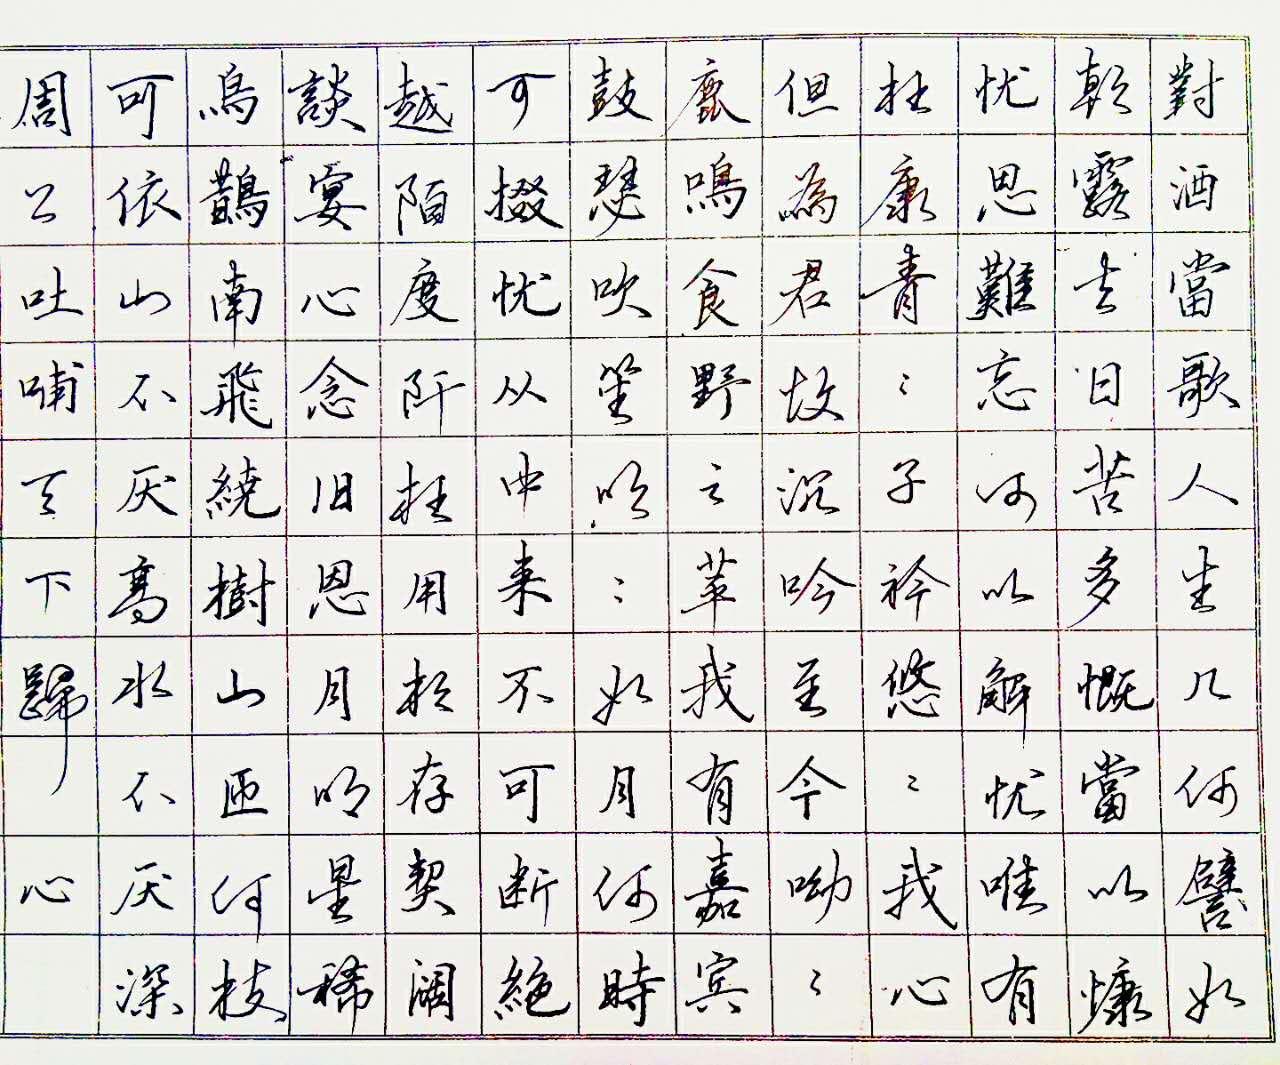 對酒當歌人生几何譬如
朝露去日苦多慨當以慷
忧思難忘何以解忧唯有
杜康青〻子衿悠〻我心
但為君故沉吟至今呦〻
鹿鳴食野之苹我有嘉宾
鼓瑟吹笙明〻如月何時
可掇忧从中来不可断絶
越陌度阡枉用相存契阔
談宴心念旧恩月明星稀
烏鵲南飛繞樹山匝何枝
可依山不厌高水不厌深
周公吐哺天下歸心